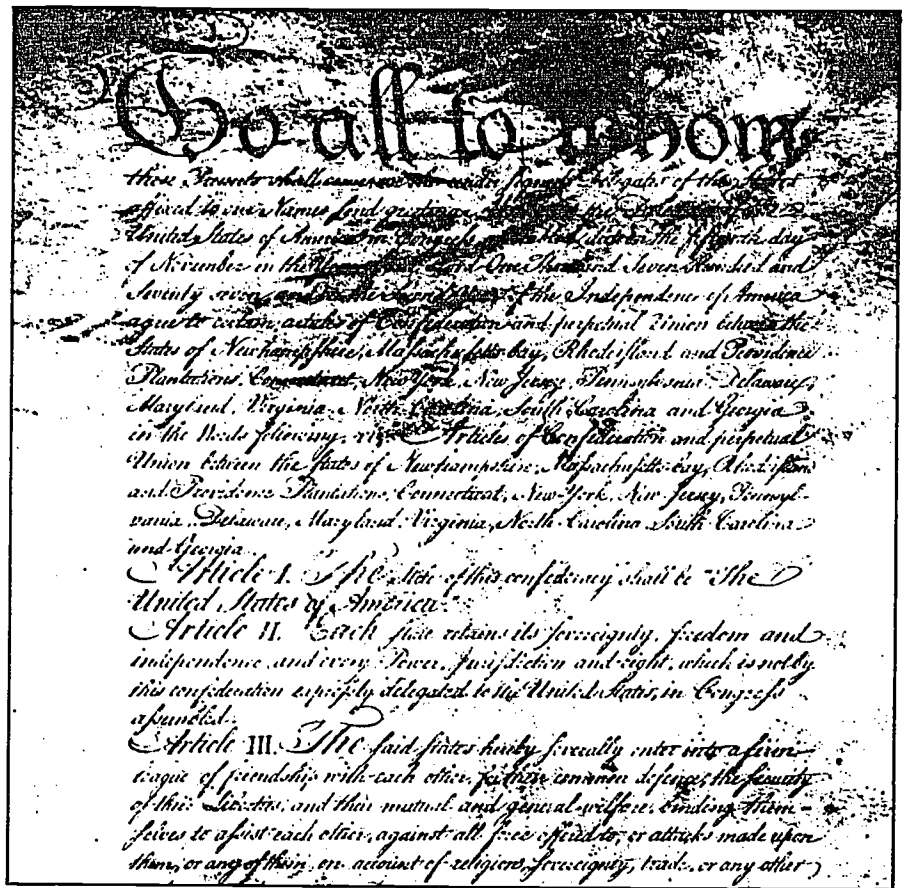 To all to whom
these Presents shall come, we the under signed Delegates of the States
affixed to our Names send greeting. Whereas the Delegates of the
United States of America in Congress assembled did on the fifteenth day
of November in the Year of our Lord One Thousand Seven Hundred and
Seventy seven, and in the Second Year of the Independence of America
agree to certain articles of Confederation and perpetual Union between the
States of Newhampshire, Massachusetts-bay, Rhodeisland and Providence
Plantations, Connecticut, New York, New Jersey, Pennsylvania, Delaware,
Maryland, Virginia, North-Carolina, South-Carolina and Georgia
in the Words following, viz. Articles of Confederation and perpetual
Union between the states of Newhampshire, Massachusetts-bay, Rhodeisland
and Providence Plantations, Connecticut, New-York, New-Jersey, Pennsyl-
vania, Delaware, Maryland, Virginia, North-Carolina, South-Carolina
and Georgia.
Article I. The Stile of this confederacy shall be "The
United States of America."
Article II. Each state retains its sovereignty, freedom and
independence, and every Power, Jurisdiction and right, which is not by
this confederation expressly delegated to the United States, in Congress
assembled.
Article III. The said states hereby severally enter into a firm
league of friendship with each other, for their common defence, the security
of their Liberties, and their mutual and general welfare, binding them-
selves to assist each other, against all force offered to, or attacks made upon
them, or any of them, on account of religion, sovereignty, trade, or any other